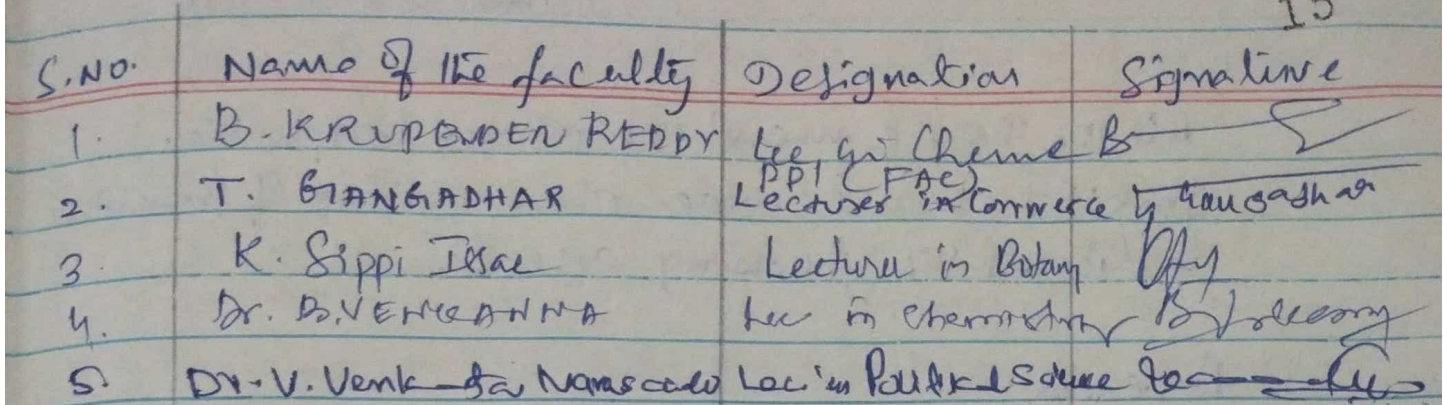 15
S.NO. Name of the faculty Designation Signature
1. B. KRUPENDER REDDY Lec, in Cheme B
PPI (FAC)
2. T. GANGADHAR Lecturer in Commerce T Gangadhar
3. K. Sippi Issac Lecturer in Botany
4. Dr. B. VENKANNA Lec in Chemistry
5 Dr. V. Venkata Lec. in Political Science